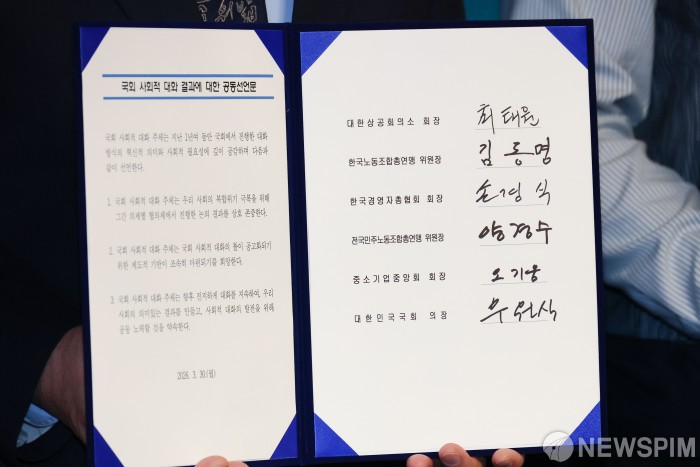 국회 사회적 대화 결과에 대한 공동선언문
국회 사회적 대화 주체는 지난 1년여 동안 국회에서 진행한 대화
방식의 혁신적 의미와 사회적 필요성에 깊이 공감하며 다음과
같이 선언한다.
1. 국회 사회적 대화 주체는 우리 사회의 복합위기 극복을 위해
그간 의제별 협의체에서 진행한 논의 결과를 상호 존중한다.
2. 국회 사회적 대화 주체는 국회 사회적 대화의 틀이 공고화되기
위한 제도적 기반이 조속히 마련되기를 희망한다.
3. 국회 사회적 대화 주체는 향후 진지하게 대화를 지속하여, 우리
사회의 의미있는 결과를 만들고, 사회적 대화의 발전을 위해
공동 노력할 것을 약속한다.
2026. 3. 30.(월)
대한상공회의소 회장 최태원
한국노동조합총연맹 위원장 김동명
한국경영자총협회 회장 손경식
전국민주노동조합총연맹 위원장 양경수
중소기업중앙회 회장 오기웅
대한민국국회 의장 우원식
NEWSPIM